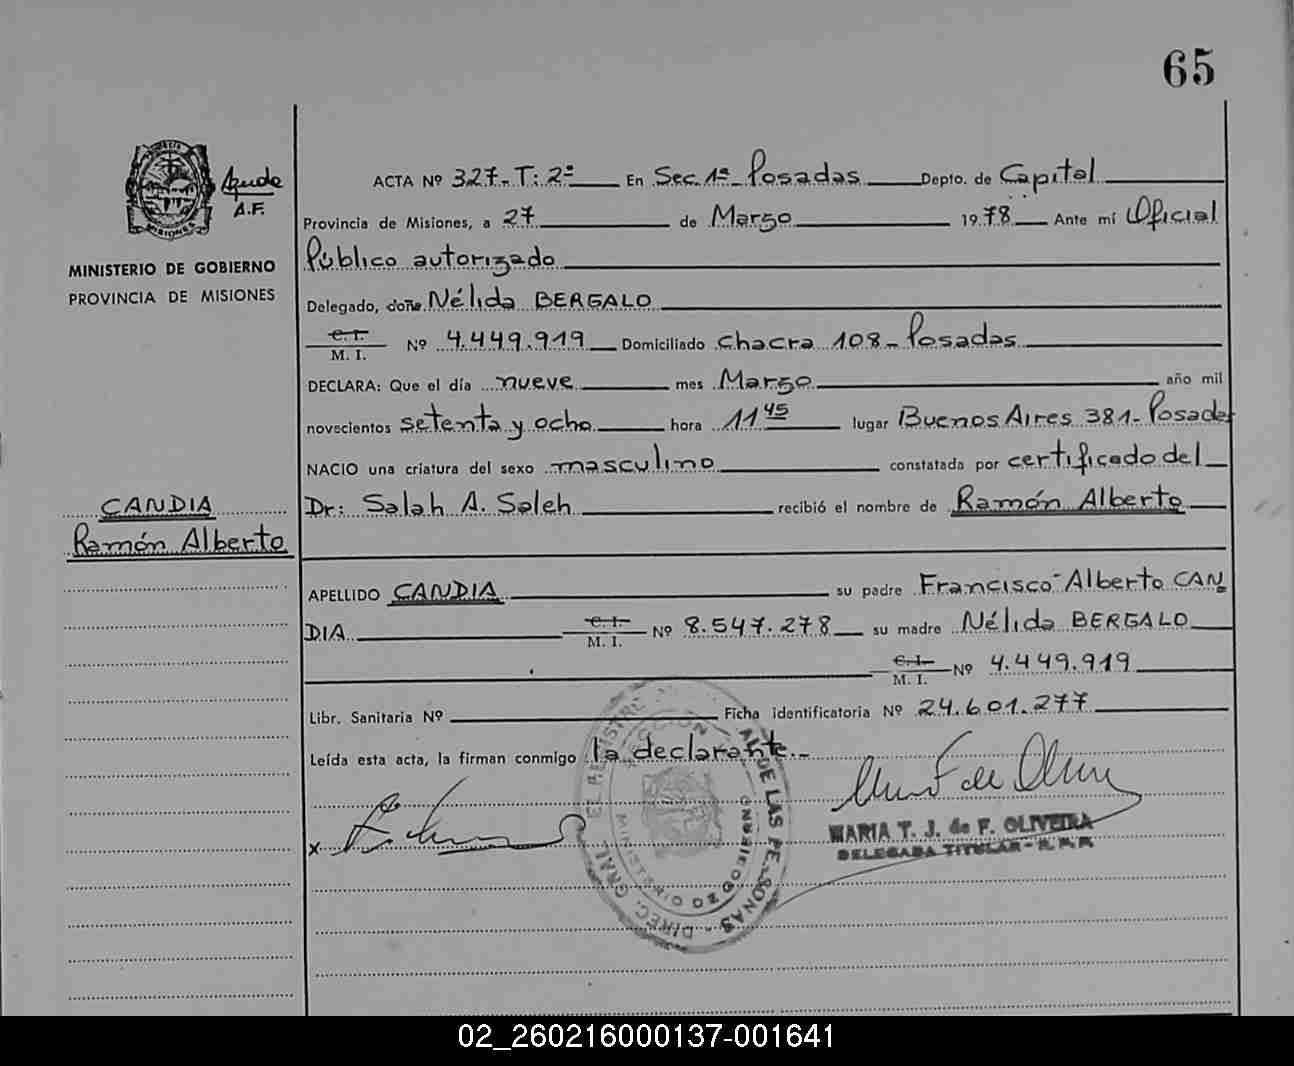 65
Ayuda
A.F.
MINISTERIO DE GOBIERNO
PROVINCIA DE MISIONES
CANDIA
Ramón Alberto
ACTA Nº 327-T: 2º En Sec. 1ª Posadas Depto. de Capital
Provincia de Misiones, a 27 de Marzo 1978 Ante mí Oficial
Público autorizado
Delegado, doña Nélida BERGALO
C. I.
M. I. Nº 4.449.919 Domiciliado Chacra 108- Posadas
DECLARA: Que el día nueve mes Marzo año mil
novecientos setenta y ocho hora 11 45 lugar Buenos Aires 381- Posadas
NACIO una criatura del sexo masculino constatada por certificado del
Dr: Salah A. Saleh recibió el nombre de Ramón Alberto
APELLIDO CANDIA su padre Francisco Alberto CAN
DIA C. I. M. I. Nº 8.547.278 su madre Nélida BERGALO
C. I. M. I. Nº 4.449.919
Libr. Sanitaria Nº Ficha identificatoria Nº 24.601.277
Leída esta acta, la firman conmigo la declarante.-
x
MARIA T. J. de F. OLIVEIRA
DELEGADA TITULAR - R. P. P.
MINISTERIO DE GOBIERNO
DIREC. GRAL. DE LAS PERSONAS
02_260216000137-001641